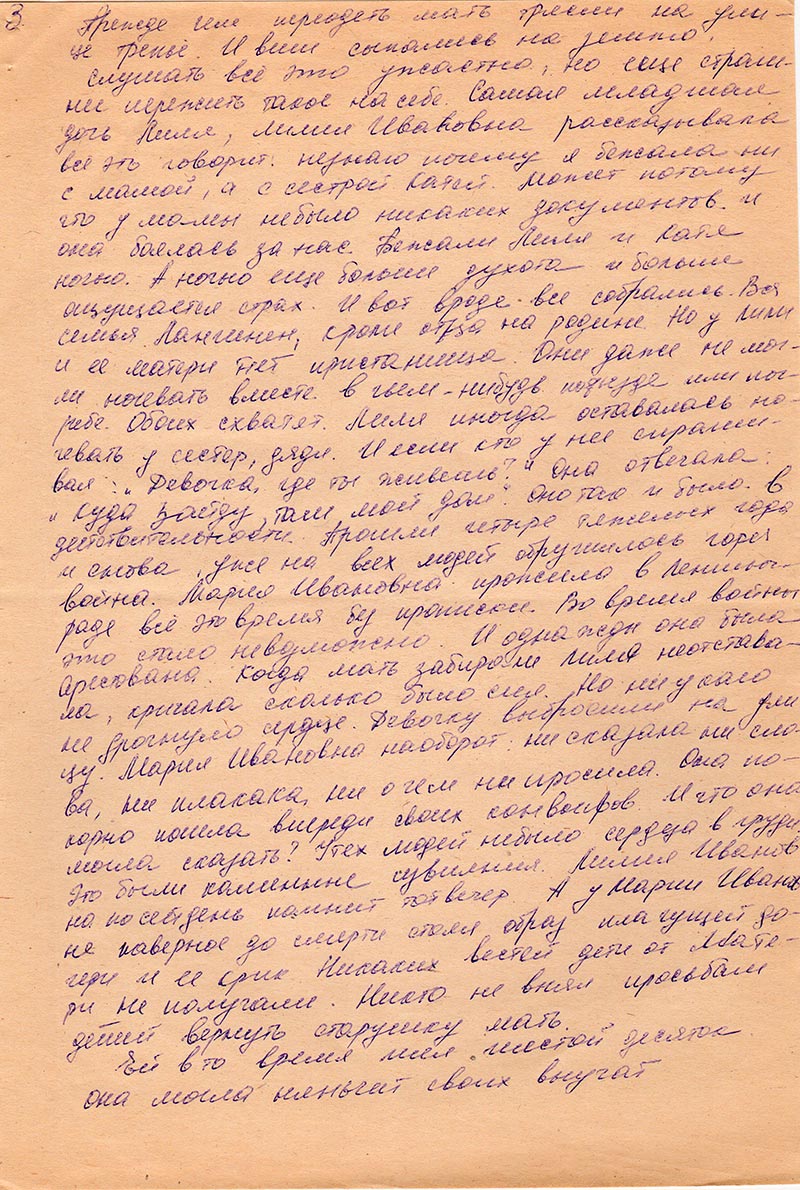 3
Прежде чем переодеть мать трясли на ули-
це тряпьё. И вши сыпались на землю.
Слушать всё это ужастно, но еще страш-
нее пережить такое на себе. Самая младшая
дочь Лиля, Лилия Ивановна рассказывала
всё это говорит: незнаю почему я бежала ни
с мамой, а с сестрой Катей. Может потому
что у мамы небыло никаких документов. и
она боялась за нас. Бежали Лиля и Катя
ночью. А ночью еще больше духота и больше
ощущается страх. И вот вроде все собрались. Вся
семья Лангинен, кроме отца на родине. Но у Лили
и ее матери нет пристанища. Они даже не мог-
ли ночевать вместе в чьем-нибудь подъезде или пог-
ребе. Обоих схватят. Лиля иногда оставалась но-
чевать у сестер, дяди. И если кто у нее спраши-
вал: „Девочка, где ты живешь?" она отвечала:
„Куда зайду, там мой дом" оно так и было. в
действительности. Прошли четыре тяжелых года
и снова, уже на всех людей обрушилось горе
война. Мария Ивановна прожила в Ленинг-
раде всё это время без прописки. Во время войны
это стало невозможно. И однажды она была
арестована. Когда мать забирали Лиля неотстава-
ла, кричала сколько было сил. Но ни у кого
не дрогнуло сердце. Девочку выбросили на ули
цу. Мария Ивановна наоборот: ни сказала ни сло-
ва, ни плакака, ни о чем ни просила. Она по-
корно пошла впереди своих конвоиров. И что она
могла сказать? У тех людей небыло сердца в груди
Это были каменные Лилия Иванов
на посейдень помнит тот вечер. А у Марии Иванов
не наверное до смерти стоял образ плачущей до-
чери и ее крик. Никаких вестей дети от Мате-
ри не получали. Никто не внял просьбам
детей вернуть старушку мать.
Ей в то время шел шестой десяток
она могла няньчит своих внучат